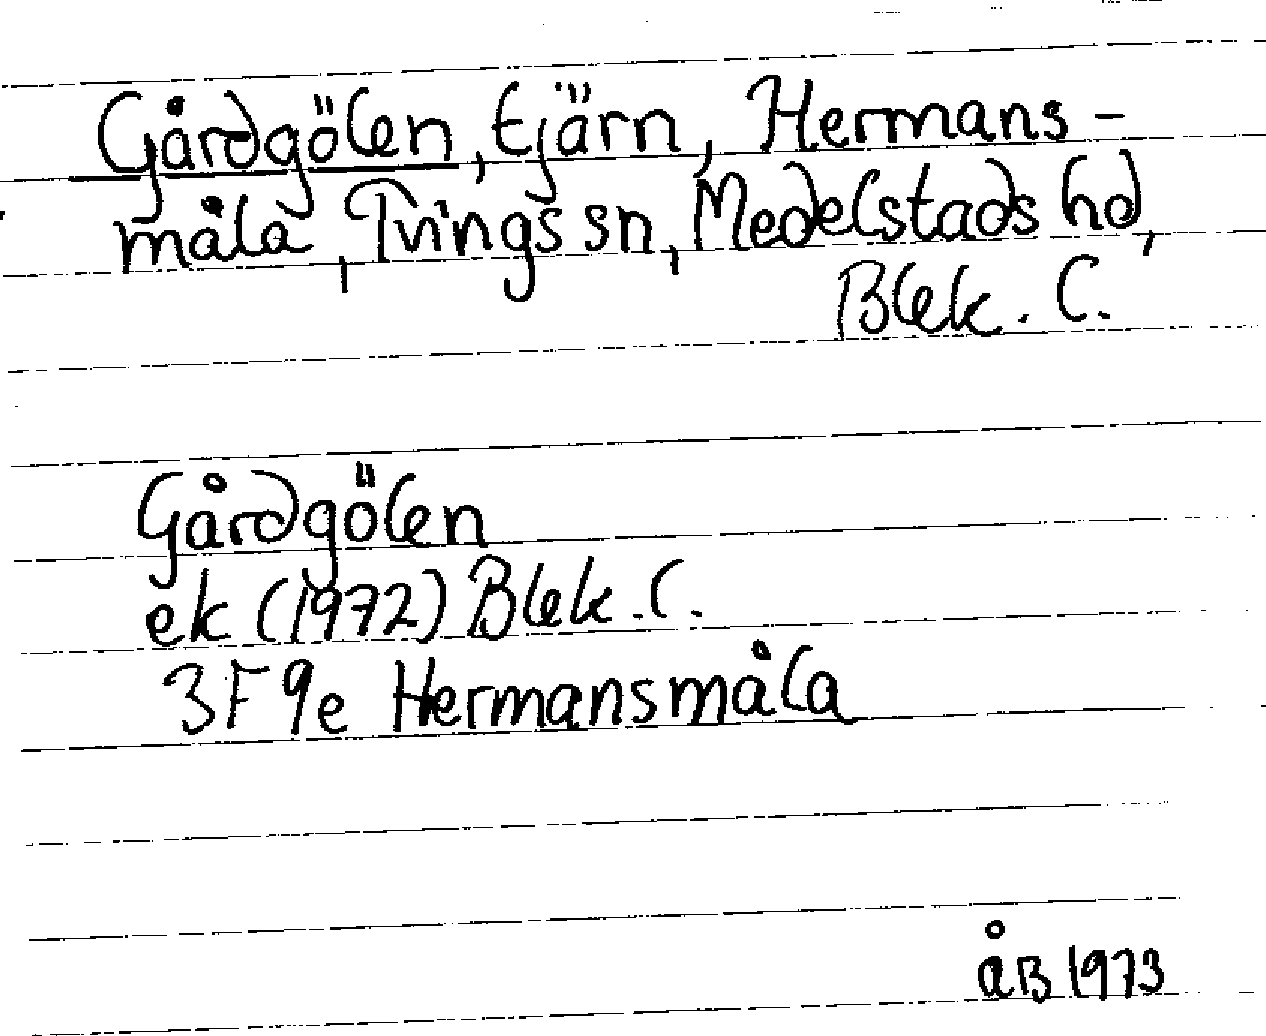 Gårdgölen, tjärn, Hermans-
måla, Tvings sn, Medelstads hd,
Blek. C.
Gårdgölen
ek (1972) Blek. C.
3F 9e Hermansmåla
åB 1973